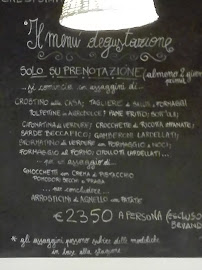 Il menù degustazione
SOLO SU PRENOTAZIONE (almeno 2 giorni
prima)
..si comincia con assaggini di...
CROSTINO della CASA, TAGLIERE di SALUMI, FORMAGGI
POLPETTINE in AGRODOLCE, PANE FRITTO
CROCCHETTE di RICOTTA
SARDE BECCAFICO, GAMBERONI LARDELLATI
con FORMAGGIO e NOCI
FORMAGGIO al FORNO, CIPOLLOTTI LARDELLATI...
..poi un assaggio di...
GNOCCHETTI con CREMA di PISTACCHIO
POMODORI SECCHI e
...per concludere...
ARROSTICINI di AGNELLO con PATATE
€23,50 A PERSONA (ESCLUSO
BEVANDE
* gli assaggini possono subire delle modifiche
in base alla stagione